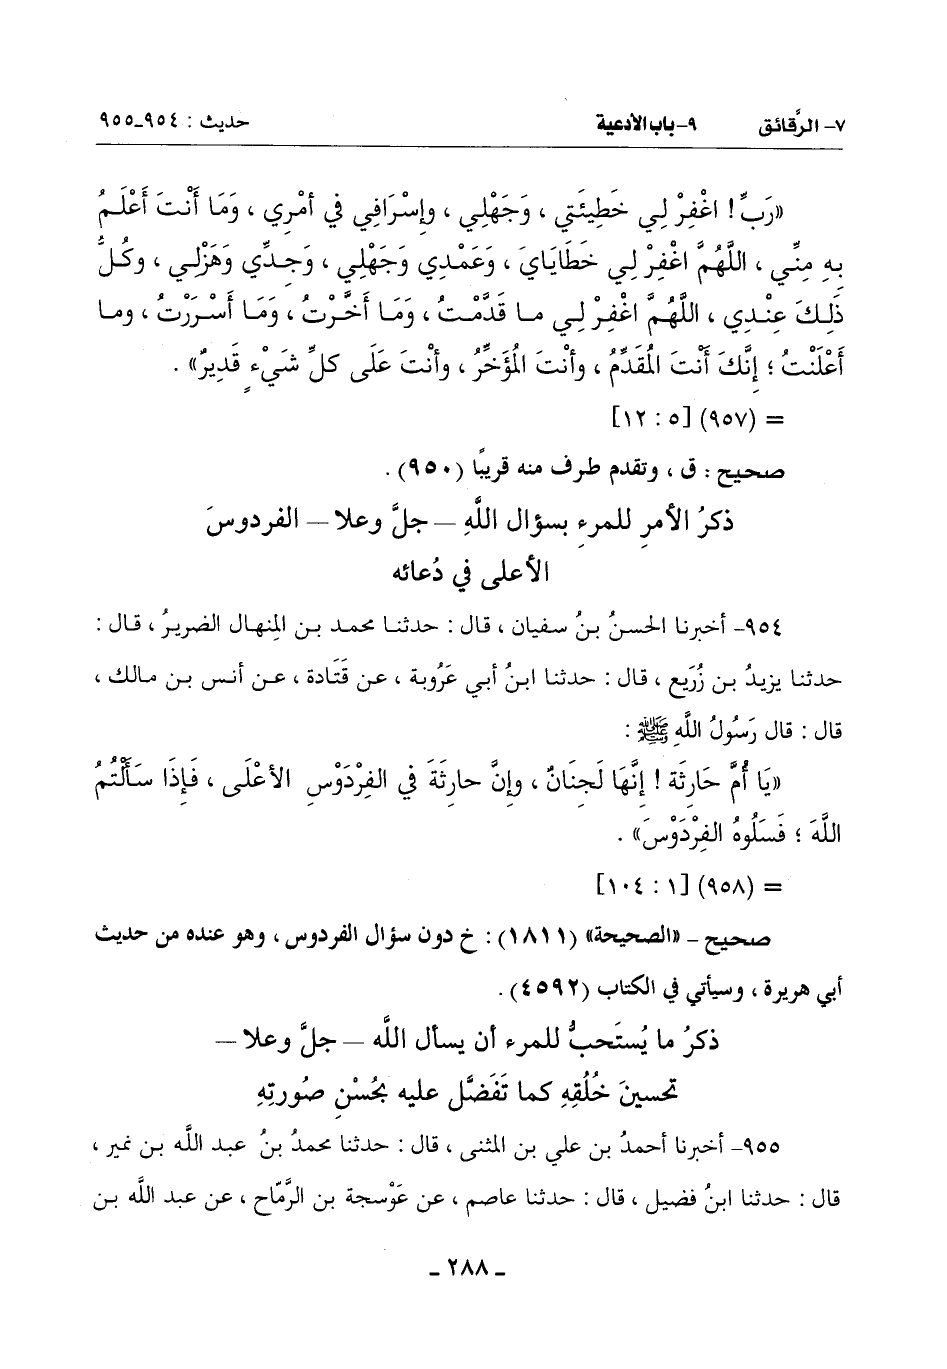 ٧- الرَّقائق ٩-باب الأدعية حديث : ٩٥٤-٩٥٥
«رَبِّ ! اغْفِرْ لِي خَطِيئَتِي ، وَجَهْلِي ، وإِسْرَافِي فِي أَمْرِي ، وَمَا أَنْتَ أَعْلَمُ
بِهِ مِنِّي ، اللَّهُمَّ اغْفِرْ لِي خَطَايَايَ ، وَعَمْدِي وَجَهْلِي ، وَجِدِّي وَهَزْلِي ، وكُلُّ
ذَلِكَ عِنْدِي ، اللَّهُمَّ اغْفِرْ لِي ما قَدَّمْتُ ، وَمَا أَخَّرْتُ ، وَمَا أَسْرَرْتُ ، وما
أَعْلَنْتُ ؛ إِنَّكَ أَنْتَ المُقَدِّمُ ، وأَنْتَ المُؤَخِّرُ ، وأَنْتَ عَلَى كلِّ شَيْءٍ قَدِيرٌ» .
= (٩٥٧) [٥ : ١٢]
صحيح : ق ، وتقدم طرف منه قريبًا (٩٥٠) .
ذكرُ الأمرِ للمرءِ بسؤال اللَّهِ – جلَّ وعلا – الفردوسَ
الأعلى في دُعائه
٩٥٤- أخبرنا الحسنُ بنُ سفيان ، قال : حدثنا محمد بن المِنهال الضريرُ ، قال :
حدثنا يزيدُ بن زُرَيع ، قال : حدثنا ابنُ أبي عَرُوبة ، عن قَتَادة ، عن أنس بن مالك ،
قال : قال رَسُولُ اللَّهِ ﷺ :
«يَا أُمَّ حَارِثَة ! إِنَّهَا لَجِنَانٌ ، وإِنَّ حارِثَةَ فِي الفِرْدَوْسِ الأَعْلَى ، فَإِذَا سَأَلْتُمُ
اللَّهَ ؛ فَسَلُوهُ الفِرْدَوْسَ» .
= (٩٥٨) [١ : ١٠٤]
صحيح – «الصحيحة» (١٨١١) : خ دون سؤال الفردوس ، وهو عنده من حديث
أبي هريرة ، وسيأتي في الكتاب (٤٥٩٢) .
ذكرُ ما يُستَحبُّ للمرءِ أن يسأل اللَّه – جلَّ وعلا –
تحسينَ خُلُقِهِ كما تَفَضَّل عليه بحُسْنِ صُورتِهِ
٩٥٥- أخبرنا أحمدُ بن علي بن المثنى ، قال : حدثنا محمدُ بنُ عبد اللَّه بن نمير ،
قال : حدثنا ابنُ فضيل ، قال : حدثنا عاصم ، عن عَوْسجة بن الرَّمّاح ، عن عبد اللَّه بن
- ٢٨٨ -